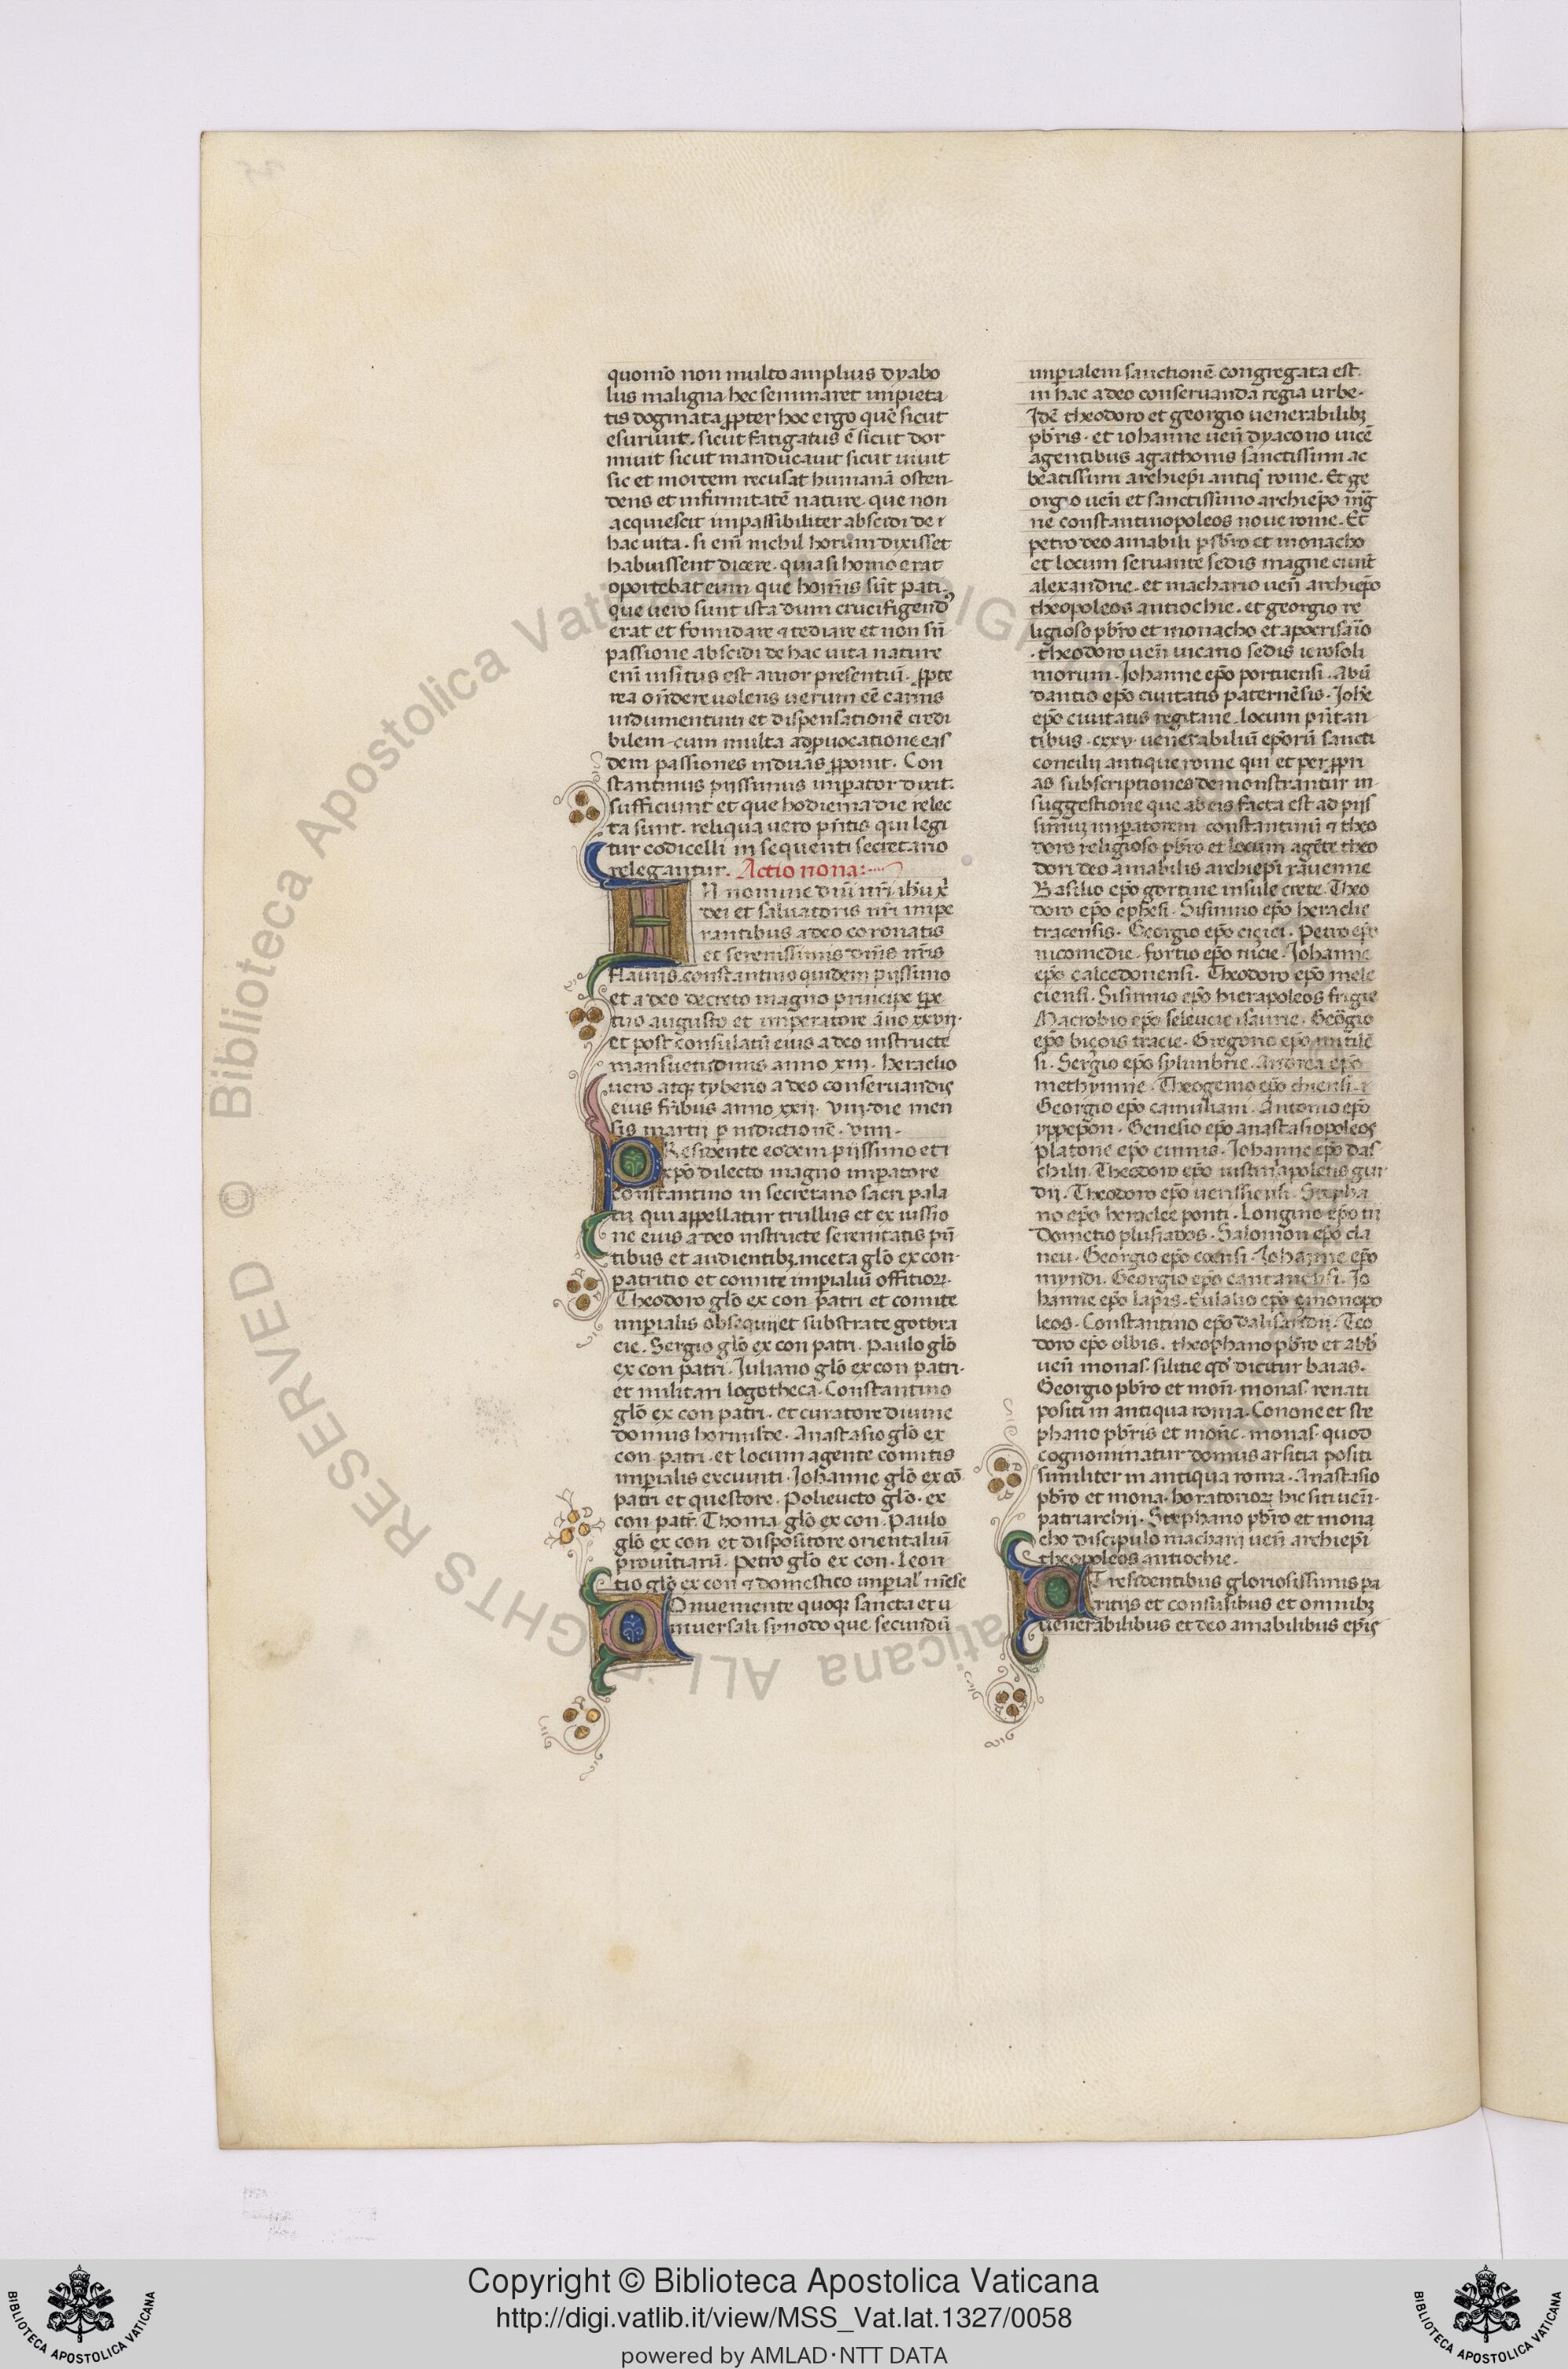 quom̄o non multo amplius dyabo
lus maligna hec seminaret impieta
tis dogmata ꝓpter hoc ergo quē sicut
esuriūit. sicut fatigatus ē sicut dor
miuit sicut manducauit sicut uiuit
sic et mortem recusat humanā osten-
dens et infirmitatē nature. que non
acquiescit impassibiliter abscidi de
hac uita. si eni nichil horum dixisset
habuissent dicere. quia si homo erat
oportebat eum que homīs sūt pati.
que uero sunt ista dum crucifigendꝰ
erat et formidare ⁊ tediare et non sū
passione abscidi de hac uita nature
eni insitus est amor presentiū. ꝓpte
rea oñdere uolens uerum eē carnis
indumentum et dispensationē credi
bilem cum multa adꝓuocatione eas
dem passiones induās ꝓponit. Con
stantinus piissimus imperator dixit.
sufficiunt et que hodierna die relec
ta sunt. reliqua uero pñtis qui legi
tur codicelli in sequenti secretario
relegantur. Actio nona:
IN nomine dñi nr̄i ihū xp̄i
dei et saluatoris nr̄i impe
rantibus a deo coronatis
et serenissimis dn̄is nr̄is
flauiis constantino quidem piissimo
et a deo decreto magno principe ꝑpe
tuo augusto et imperatore āno xxvii.
et post consulatū eius a deo instructe
mansuetudinis anno xiii. heraclio
uero atqꝫ tyberio a deo conseruandis
eius fr̄ibus anno xxii. viii. die men
sis martii ꝑ indictionē. viiii.
PResidente eodem piissimo et
xp̄o dilecto magno imperatore
constantino in secretario sacri pala
tii qui appellatur trullus et ex iussio
ne eius a deo instructe serenitatis pñ
tibus et audientibꝫ niceta glo ex con-
patritio et comite imperialiū offitioꝝ.
Theodoro glō ex con patri et comite
imperialis obsequii et substrate gothra
cie. Sergio glō ex con patri. Paulo glō
ex con patri. Juliano glō ex con patri.
et militari logotheca. Constantino
glō ex con patri. et curatore diuine
domus hormisde. Anastasio glō ex
con patri. et locum agente comitis
imperialis excuuiti. Iohanne glō ex cō
patri et questore. Polieucto glo. ex
con patr̄. Thoma glō ex con. Paulo
glō ex con et dispositore orientaliū
prouintiarū. Petro glō ex con. Leon
tio glō ex con ⁊ domestico imperial' mēse
COnueniente quoqꝫ sancta et u
niuersali synodo que secundū
imperialem sanctionē congregata est
in hac a deo conseruanda regia urbe.
Idē theodoro et georgio uenerabilibꝫ
pbr̄is. et iohanne ueñ dyacono uicē
agentibus agathonis sanctissimi ac
beatissimi archiepi antiq̄ rome. Et ge
orgio ueñ et sanctissimo archiep̄o
ne constantinopoleos noue rome. Et
petro deo amabili pr̄sbro et monacho
et locum seruante sedis magne ciuit̄
alexandrie. et machario ueñ archiep̄o
theopoleos antiochie. et georgio re
ligioso pbr̄o et monacho et apocrisario
theodoro ueñ uicario sedis ierosoli
morum. Iohanne ep̄o portuensi. abū
dantio ep̄o ciuitatis paternēsis. Iohē
ep̄o ciuitatis regitane locum pn̄tan
tibus. cxxv. uenerabiliū ep̄orū sancti
concilij antique rome qui et per ꝓpri
as subscriptiones demonstrantur in
suggestione que ab eis facta est ad piis
simuꝫ imperatorem constantinū ⁊ theo
doro religioso pbr̄o et locum agēte theo
dori deo amabilis archiep̄i rauenne
Basilio ep̄o gortine insule crete. Theo
doro ep̄o ephesi. Sisinnio ep̄o heraclie
tracensis. Georgio ep̄o cizici. Petro ep̄o
nicomedie. fortio ep̄o nicie. Iohanne
ep̄o calcedonensi. Theodoro ep̄o mele
ciensi. Sisinnio ep̄o hierapoleos frigie
Macrobio ep̄o seleucie isaurie. Geōgio
ep̄o bicois tracie. Gregorio ep̄o mitilē
si. Sergio ep̄o sylumbrie. Andrea ep̄o
methymne. Theogenio ep̄o chiensi.
Georgio ep̄o camiliani. Antonio ep̄o
yppepon. Genesio ep̄o anastasiopoleos
platone ep̄o cinnis. Iohanne ep̄o das
chilii. Theodoro ep̄o iustinapoletis gur
dij. Theodoro ep̄o uerissiensi. Stepha
no ep̄o heraclee ponti. Longino ep̄o tii
Dometio plusiados. Salomon ep̄o cla
neu. Georgio ep̄o coensi. Iohanne ep̄o
myndi. Georgio ep̄o cantanensi. Io
hanne ep̄o lapis. Eulalio ep̄o zinonopo
leos. Constantino ep̄o dalisandii. Teo
doro ep̄o olbis. theophano pbr̄o et abbē
ueñ monas. silitie qd' dicitur baias.
Georgio pbr̄o et moñ. monas. renati
positi in antiqua roma. Conone et ste
phano pbr̄is et monc̄. monas. quod
cognominatur domus arsitia positi
similiter in antiqua roma. Anastasio
pbr̄o et mona. horatorioꝝ hic siti ueñ.
patriarchij. Stephano pbr̄o et mona
cho discipulo macharij ueñ archiep̄i
theopoleos antiochie.
Presedentibus gloriosissimis pa
tritijs et consulibus et omnibꝫ
uenerabilibus et deo amabilibus ep̄is
© Biblioteca Apostolica Vaticana ALL RIGHTS RESERVED
Copyright © Biblioteca Apostolica Vaticana
http://digi.vatlib.it/view/MSS_Vat.lat.1327/0058
powered by AMLAD·NTT DATA
BIBLIOTECA APOSTOLICA VATICANA
BIBLIOTECA APOSTOLICA VATICANA